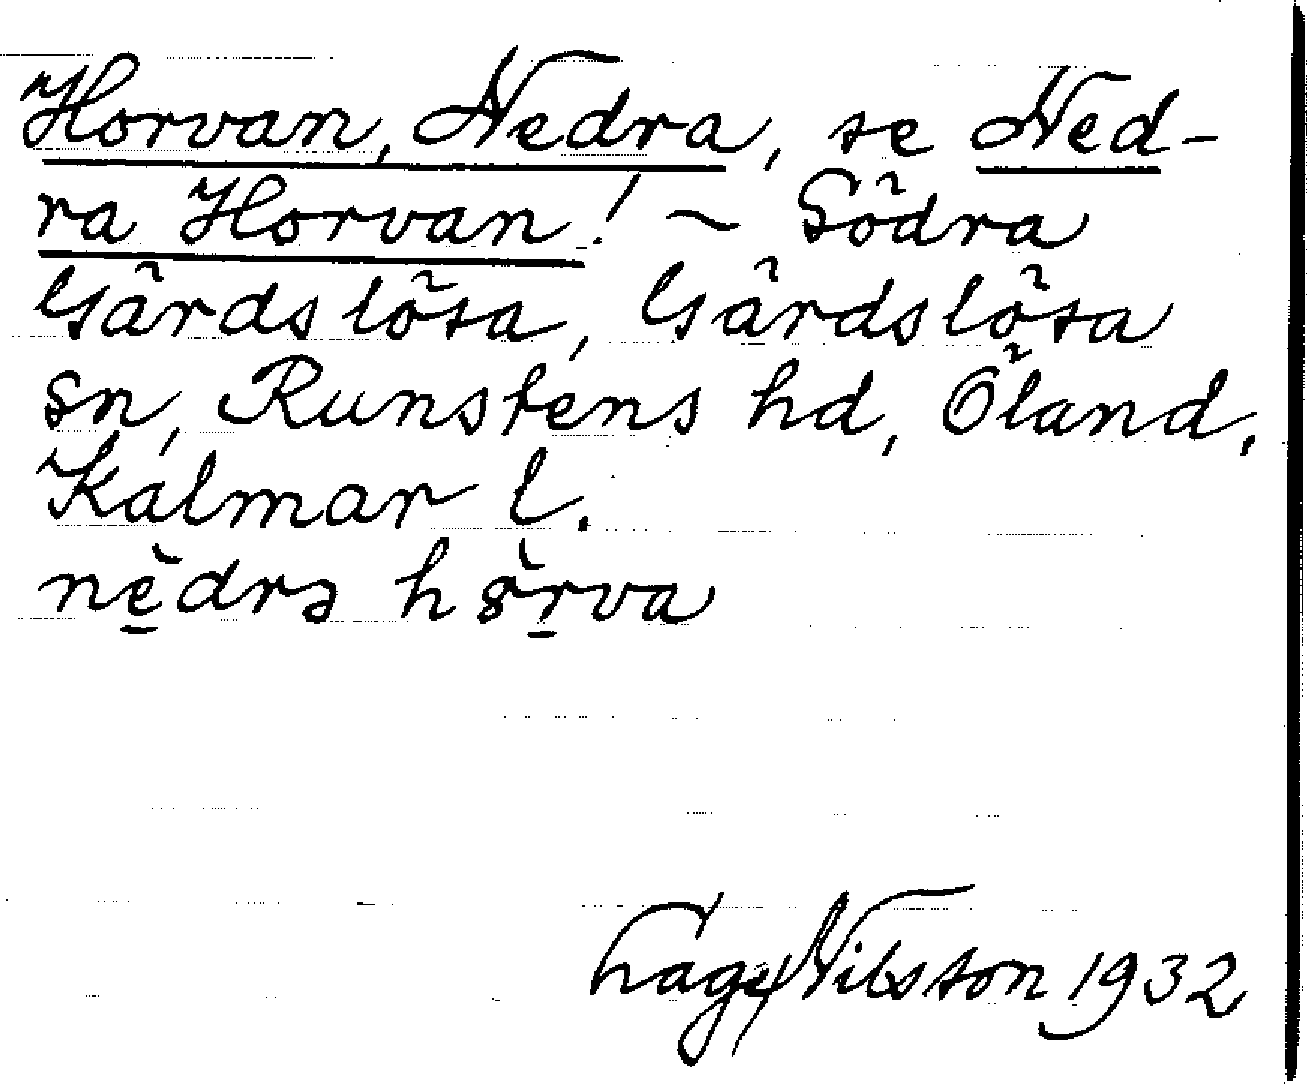 Horvan, Nedra, se Ned-
ra Horvan! ~ Södra
Gårdslösa, Gårdslösa
sn, Runstens hd, Öland,
Kalmar l.
nè̠drə hò̠rva
Hage Nilsson 1932